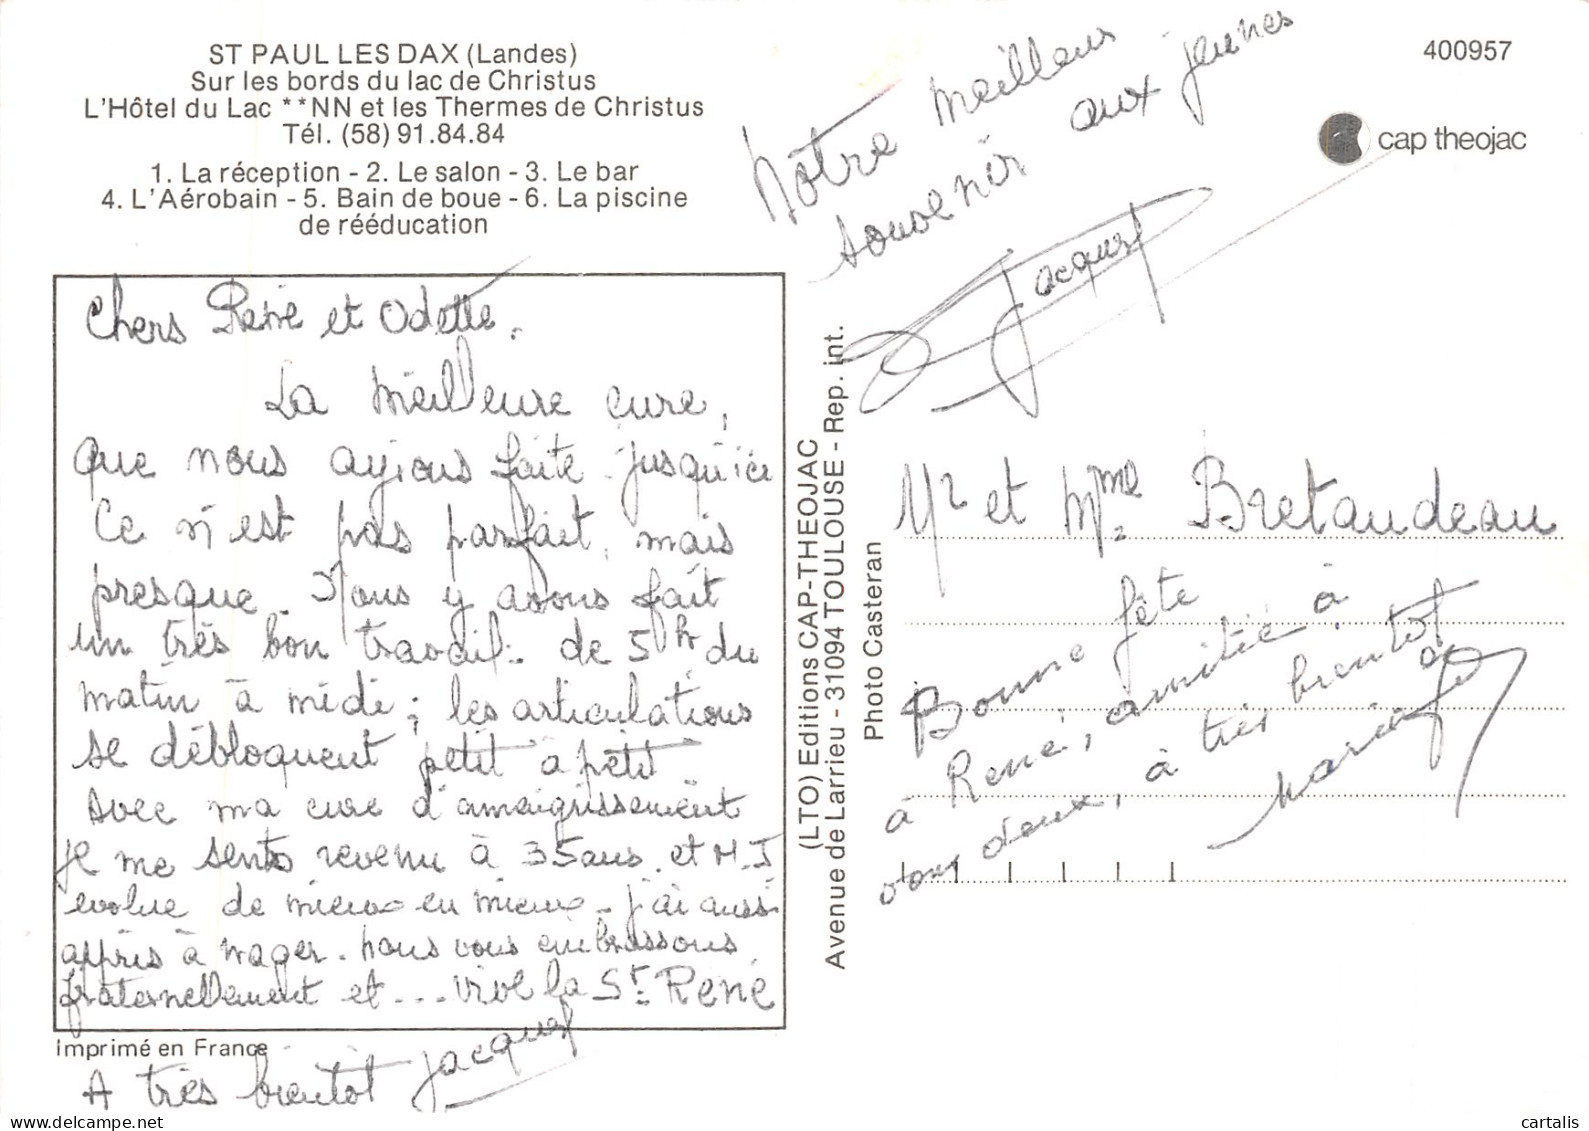 ST PAUL LES DAX (Landes)
Sur les bords du lac de Christus
L'Hôtel du Lac **NN et les Thermes de Christus
Tél. (58) 91.84.84
1. La réception - 2. Le salon - 3. Le bar
4. L'Aérobain - 5. Bain de boue - 6. La piscine
de rééducation
Chers René et Odette.
La meilleure cure,
que nous ayions faite jusqu'ici
Ce n'est pas parfait, mais
presque. Nous y avons fait
un très bon travail : de 5hr du
matin à midi ; les articulations
se débloquent petit à petit.
avec ma cure d'amaigrissement
je me sents revenu à 35 ans. et M.J
evolue de mieux en mieux. j'ai aussi
appris à nager. nous vous embrassons
fraternellement et... vive la St. René
A très bientot Jacques
Imprimé en France
Nôtre meilleur
souvenir aux jeunes
Jacques
400957
cap theojac
(LTO) Editions CAP-THEOJAC
Avenue de Larrieu - 31094 TOULOUSE - Rep. int.
Photo Casteran
Mr et Mme Bretaudeau
Bonne fête
à René, amitié à
vous deux, à très bientot